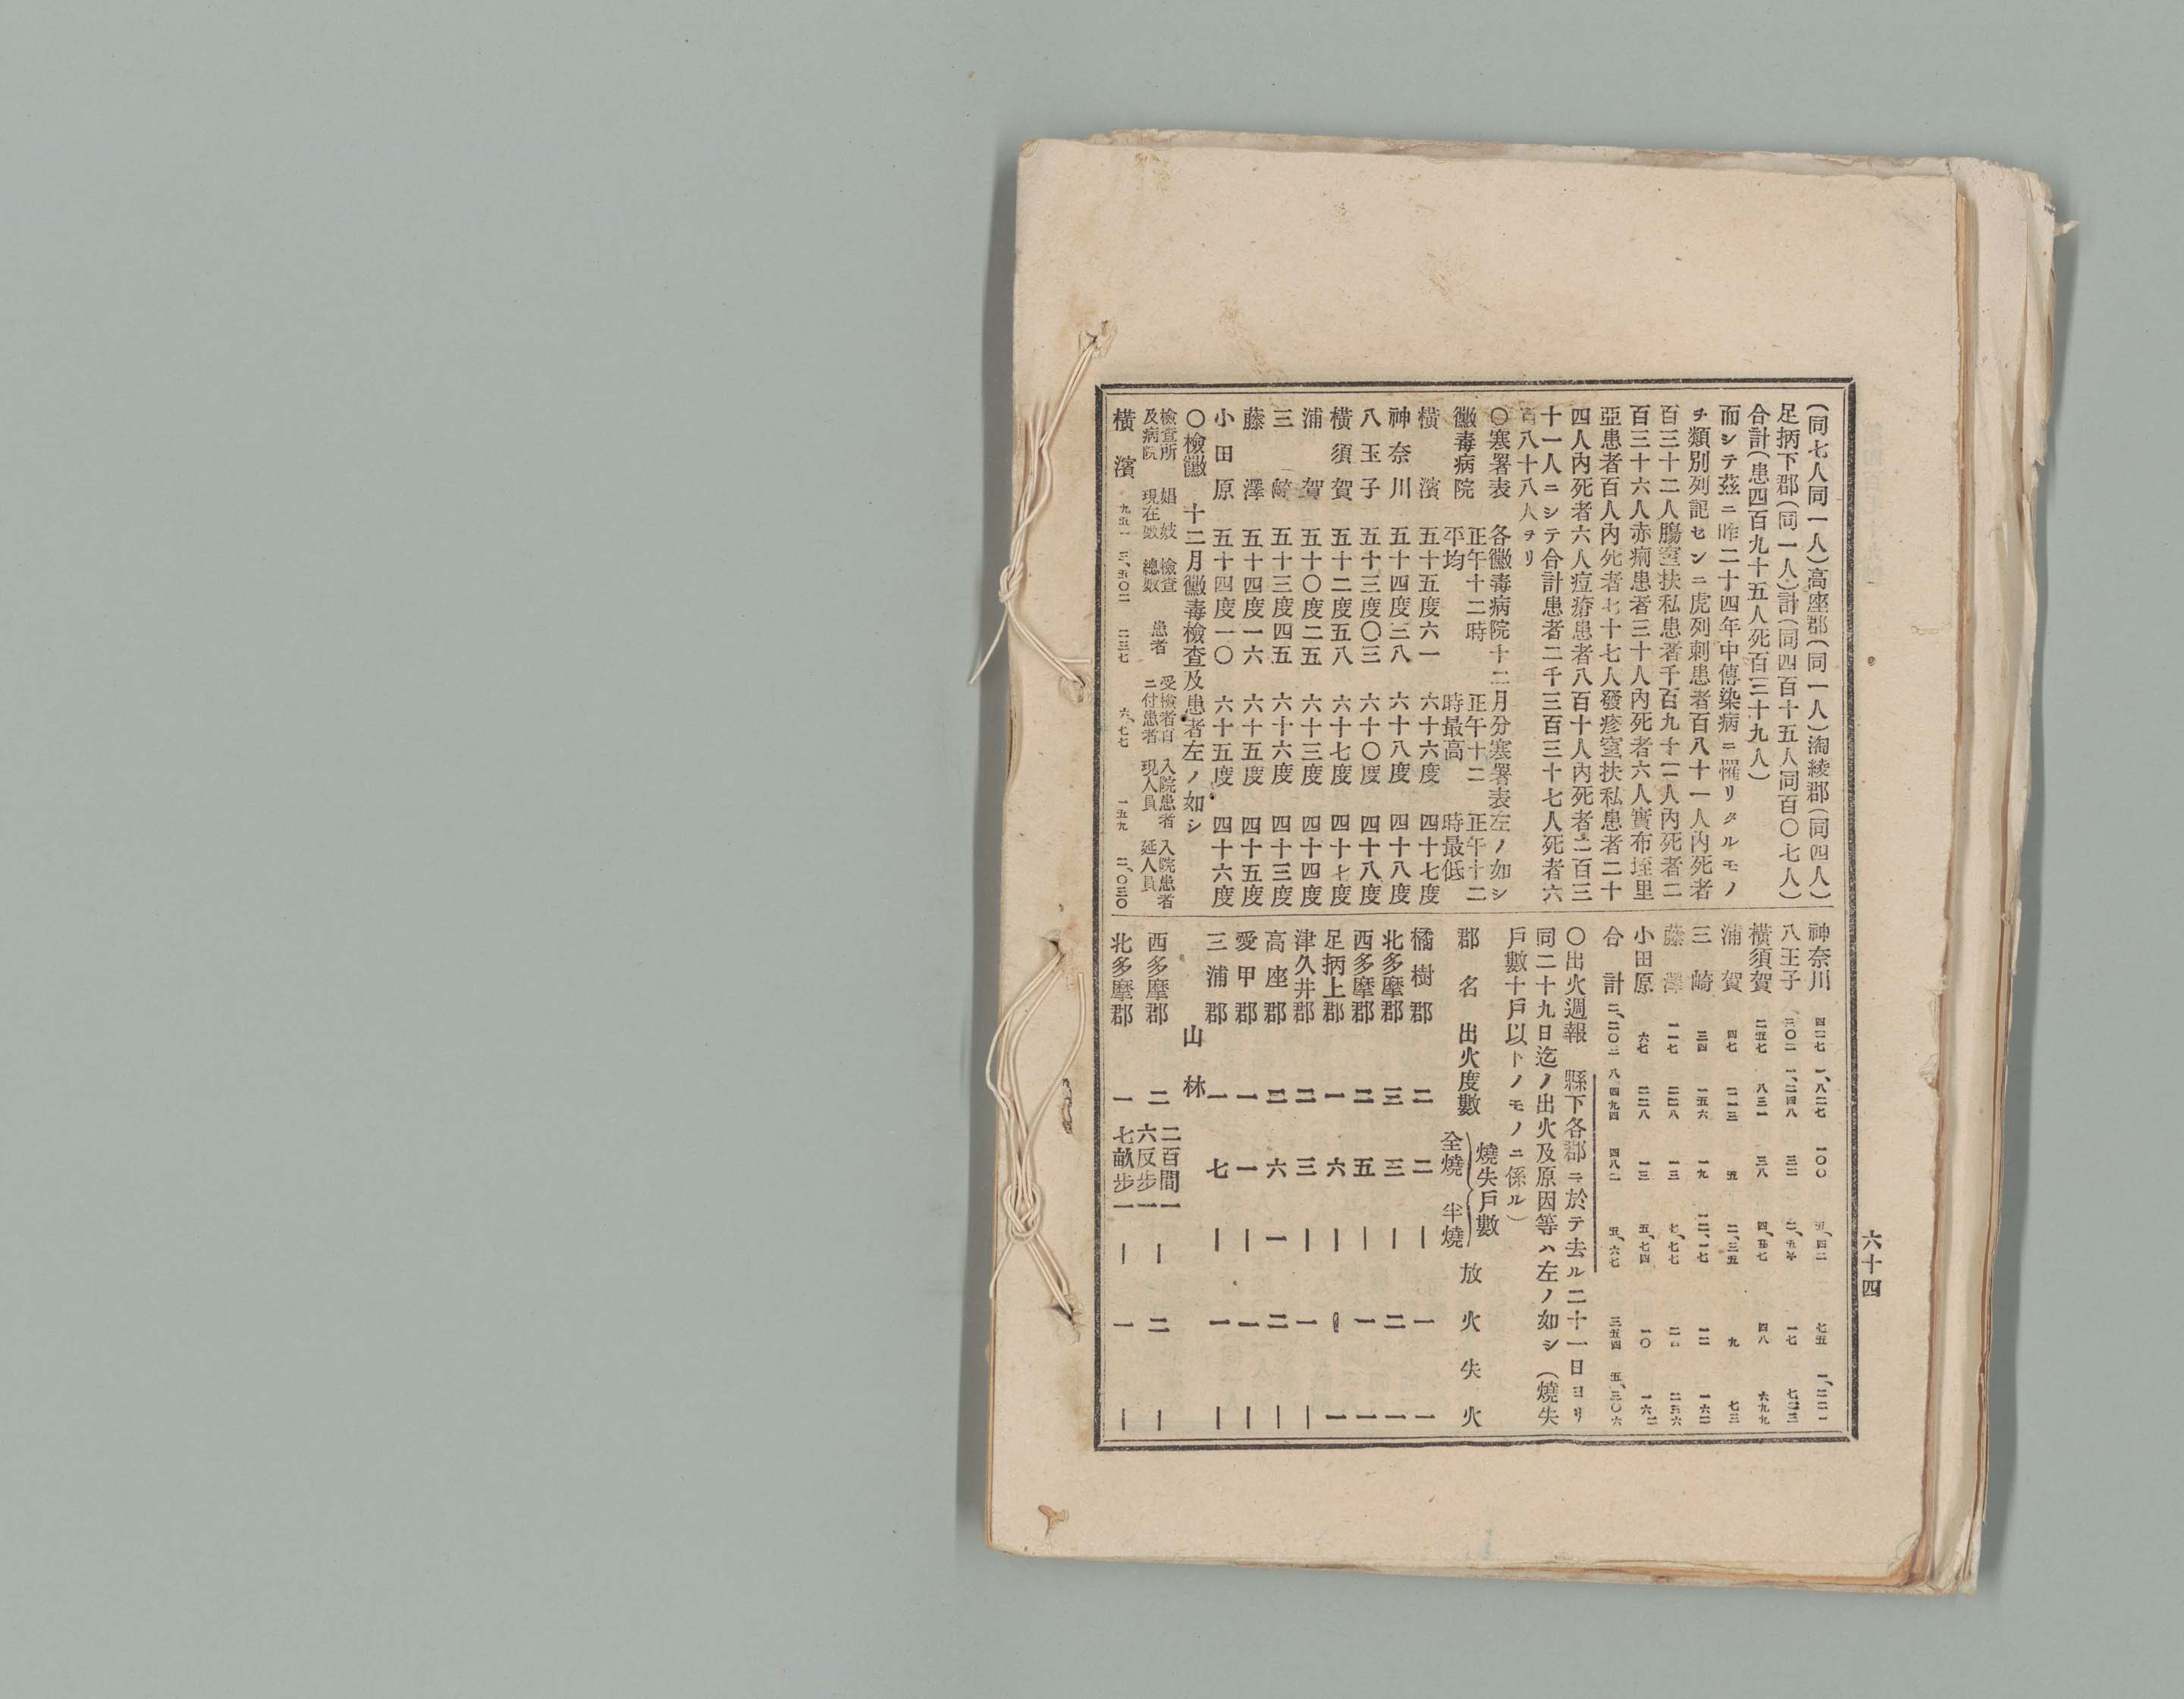 六十四
(同七人同一人)高座郡(同一人)淘綾郡(同四人)
足柄下郡(同一人)計(同四百十五人同百〇七人)
合計(患四百九十五人死百三十九人)
而シテ茲ニ昨二十四年中傳染病ニ罹リタルモノ
ヲ類別列記センニ虎列刺患者百八十一人內死者
百三十二人膓窒扶私患者千百九十二人內死者二
百三十六人赤痢患者三十人內死者六人實布垤里
亞患者百人內死者七十七人發疹窒扶私患者二十
四人內死者六人痘瘡患者八百十人內死者二百三
十一人ニシテ合計患者二千三百三十七人死者六
百八十八人ヲリ
〇寒署表 各黴毒病院十二月分寒署表左ノ如シ
黴毒病院 正午十二時平均 正午十二時最高 正午十二時最低
橫濱 五十五度六一 六十六度 四十七度
神奈川 五十四度三八 六十八度 四十八度
八玉子 五十三度〇三 六十〇度 四十八度
橫須賀 五十二度五八 六十七度 四十七度
浦賀 五十〇度二五 六十三度 四十四度
三崎 五十三度四五 六十六度 四十三度
藤澤 五十四度一六 六十五度 四十五度
小田原 五十四度一〇 六十五度 四十六度
〇檢黴 十二月黴毒檢查及患者左ノ如シ
檢查所及病院 娼妓現在數 檢查總數 患者 受檢者百ニ付患者 入院患者現人員 入院患者延人員
橫濱 九五一 三、五〇二 二三七 六、七七 一五九 二、〇三〇
神奈川 四二七 一、八二七 一〇〇 五、四二 七五 一、二二一
八王子 三〇二 一、二四八 三二 二、五六 一七 七二三
橫須賀 二五七 八三一 三八 四、五七 四八 六九九
浦賀 四七 二一三 五 二、三五 九 七三
三崎 三四 一五六 一九 一二、一七 一二 一六二
藤澤 一一七 二二八 一三 七、七七 二四 二三六
小田原 六七 二二八 一三 五、七四 一〇 一六二
合計 二、二〇二 八四九四 四八二 五、六七 三五四 五、三〇六
〇出火週報 縣下各郡ニ於テ去ル二十一日ヨリ
同二十九日迄ノ出火及原因等ハ左ノ如シ(燒失
戶數十戶以下ノモノニ係ル)
郡名 出火度數 燒失戶數 全燒 半燒 放火 失火
橘樹郡 二 二 ー 一 一
北多摩郡 三 三 ー 二 一
西多摩郡 二 五 ー 一 一
足柄上郡 一 六 ー 一
津久井郡 二 三 ー 一 ー
高座郡 二 六 一 二 ー
愛甲郡 一 一 ー 一 ー
三浦郡 一 七 ー 一 ー
山林
西多摩郡 二 二百間一 六反步一 ー 二 ー
北多摩郡 一 七畝步一 ー 一 ー